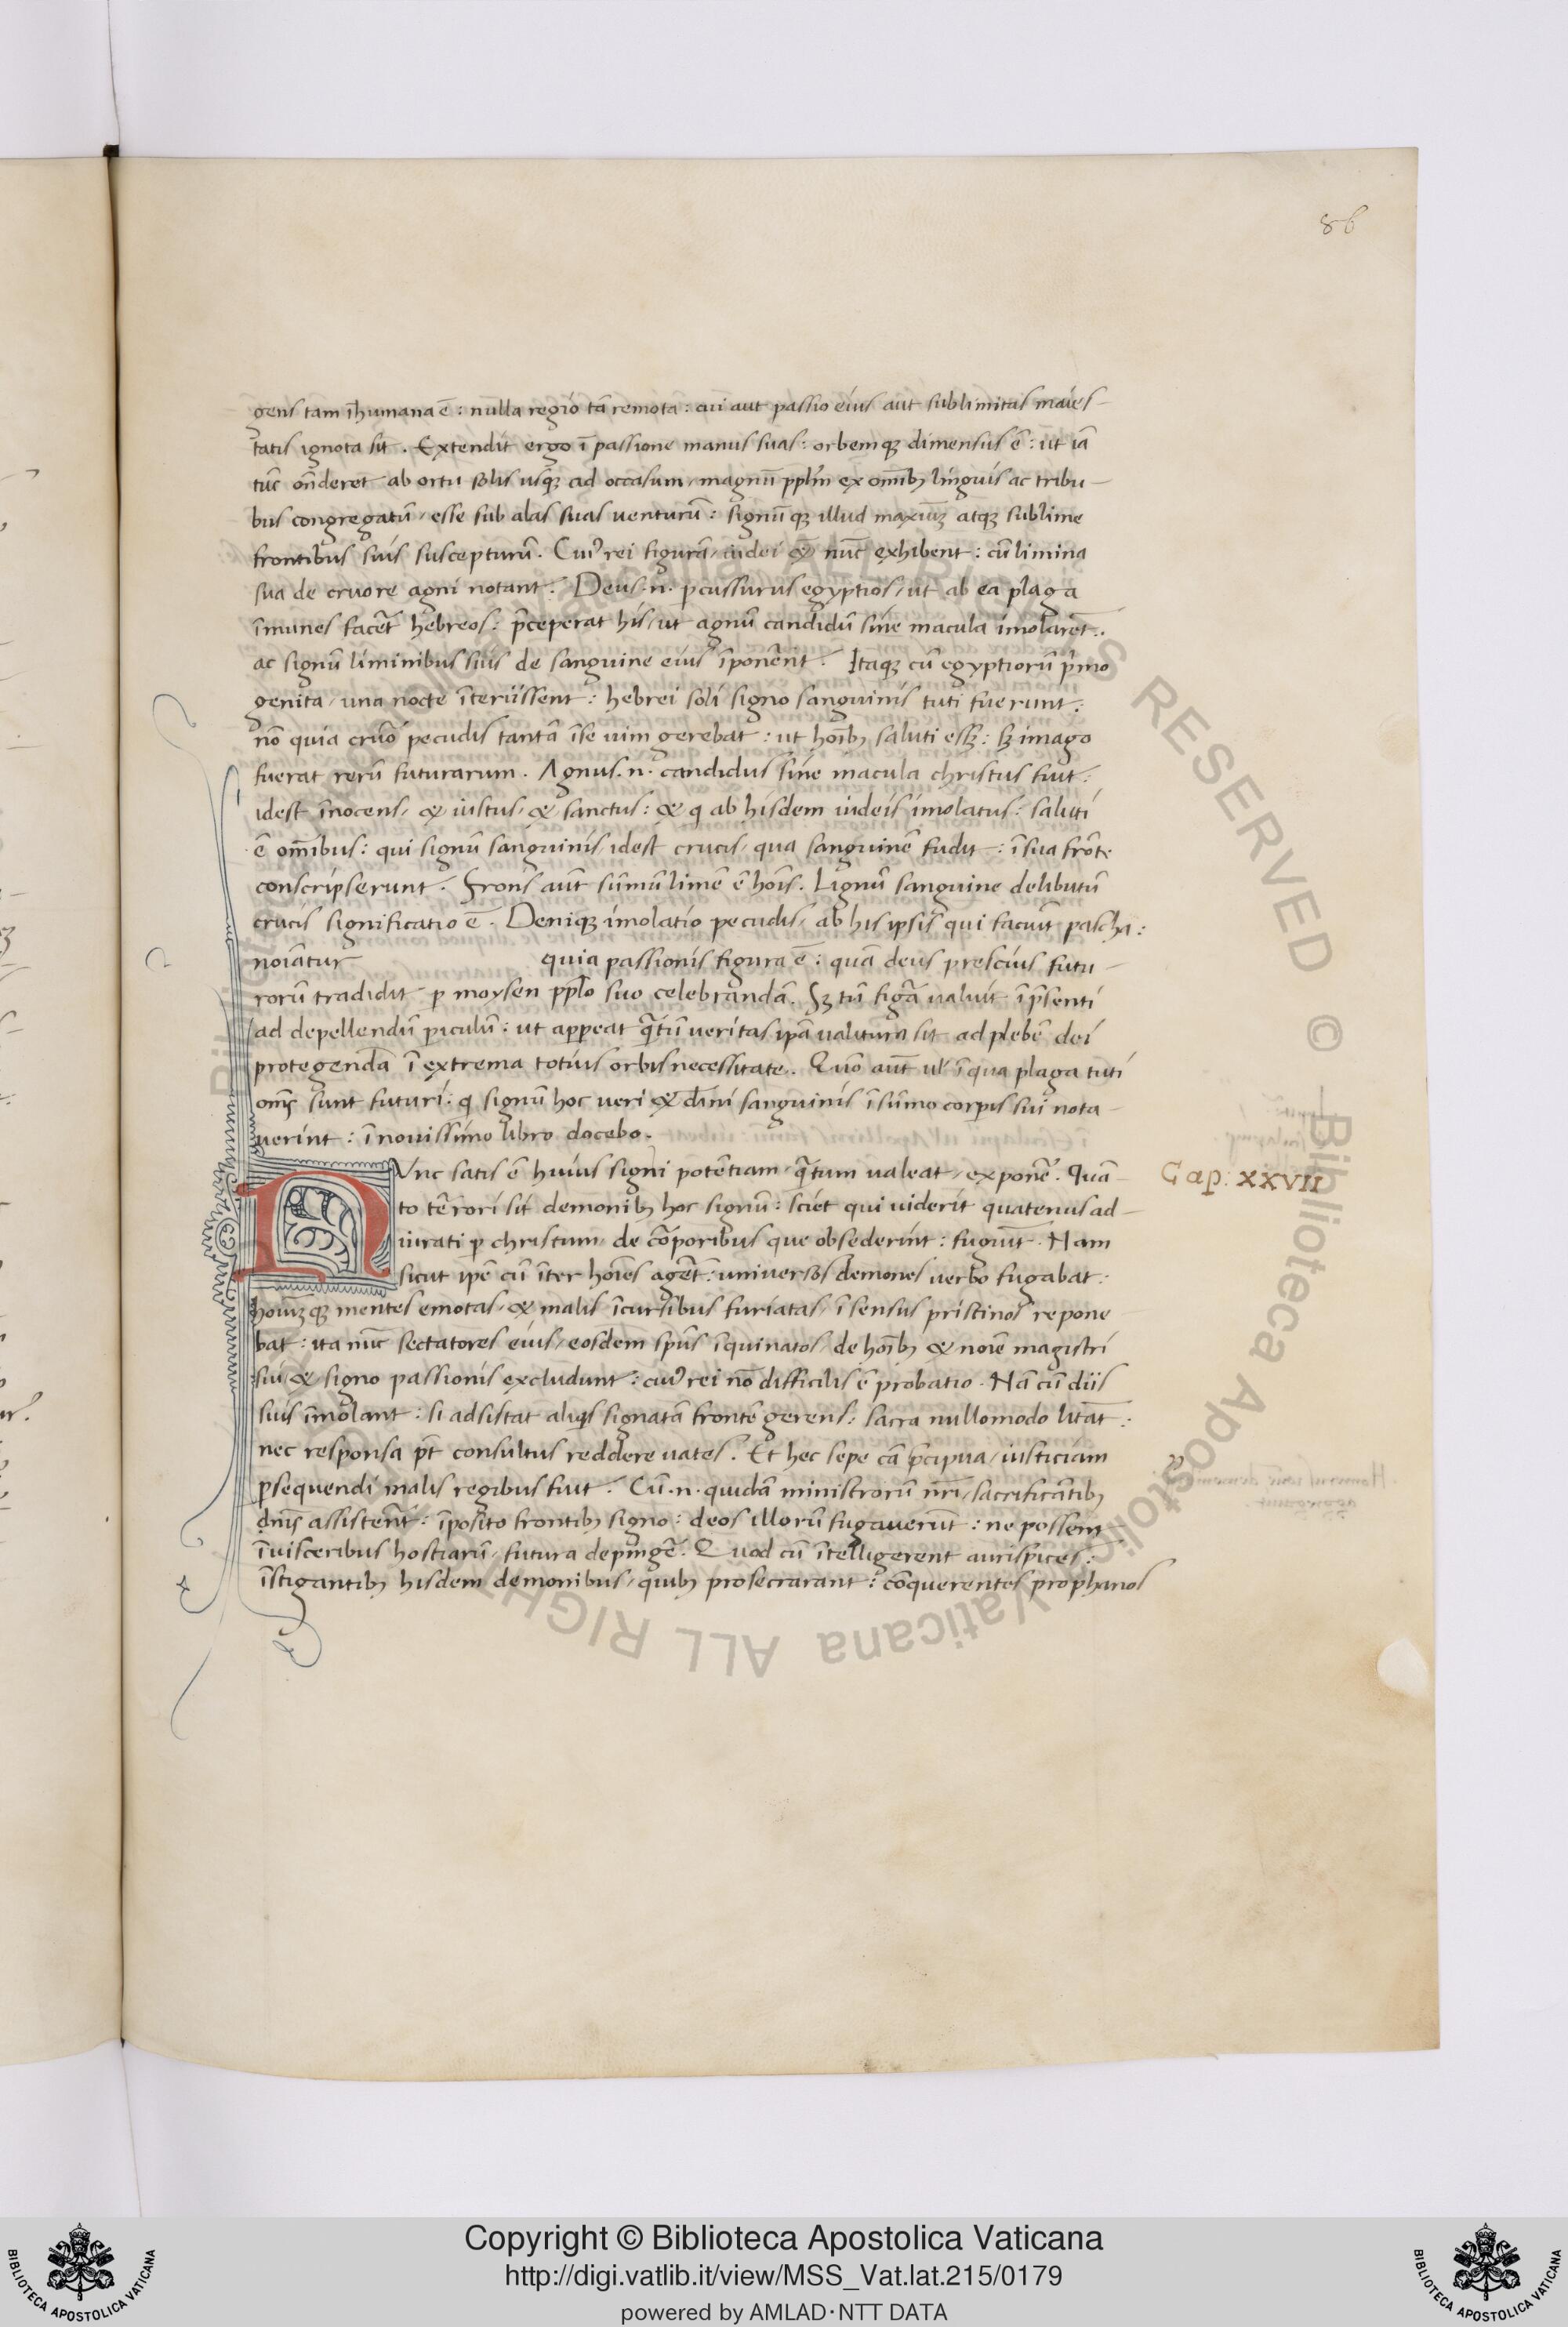 86
gens tam īhumana ē : nulla regio tā remota : cui aut passio eius aut sublimitas maies-
tatis ignota sit . Extendit ergo ī passione manus suas : orbemqꝫ dimensus ē : ut iā
tūc oñderet ab ortu solis usqꝫ ad occasum, magnū pplm̄ ex omībꝫ linguis ac tribu-
bus congregatū, esse sub alas suas venturū : signūqꝫ illud maxiūꝫ atqꝫ sublime
frontibus suis suscepturū . Cuiꝰ rei figurā, iudei & nūc exhibent : cū limina
sua de cruore agni notant . Deus .n. ꝑcussurus egyptios, ut ab ea plaga
īmunes facēt hebreos : p̄ceperat his, ut agnū candidū sine macula imolarēt .
ac signū liminibus suis de sanguine eius īponerēt . Itaqꝫ cū egyptiorū p̄mo
genita, una nocte īteriissent : hebrei soli signo sanguinis tuti fuerunt :
nō quia cruor pecudis tantā īse uim gerebat : ut hoībꝫ saluti eēꝫ : sꝫ imago
fuerat rerū futurarum . Agnus .n. candidus sine macula christus fuit :
idest īnocens, & iustus, & sanctus : & q ab hisdem iudeis imolatus : saluti
ē omībus : qui signū sanguinis, idest crucis, qua sanguinē fudit : ī sua frōte
conscripserunt . Frons aūt sūmū limē ē hoīs . Lignū sanguine delibutū
crucis significatio ē . Denique imolatio pecudis, ab his ipsis qui faciūt pascha :
noīatur quia passionis figura ē : quā deus prescius futu-
rorū tradidit ꝑ moysen pplo suo celebrandā . Sꝫ tū figā ualuit ī p̄senti
ad depellendū ꝑiculū : ut apꝑeat q̄tū veritas ipā ualitura sit ad plebē dei
protegendā ī extrema totius orbis necessitate . Quō aūt ul' ī qua plaga tuti
om̄s sunt futuri : q signū hoc veri & dīni sanguinis ī sūmo corꝑis sui nota-
uerint : ī nouissimo libro docebo .
NVnc satis ē huius signi potētiam, q̄tum ualeat, exponē . Quā-
to terrori sit demonibꝫ hoc signū : sciet qui uiderit quatenus ad-
iurati ꝑ christum, de corporibus que obsederint : fugiūt . Nam
sicut ipē cū īter hoīes agēt : universos demones verbo fugabat :
hoiūꝫqꝫ mentes emotas, & malis īcursibus furiatas, ī sensus pristinos repone
bat : ita nūc sectatores eius, eosdem spūs īquinatos, de hoībꝫ & noīe magistri
sui & signo passionis excludunt : cuiꝰ rei nō difficilis ē probatio . Nā cū diis
suis īmolant : si adsistat aliqͥs signatā frontē gerens : sacra nullomodo litāt :
nec responsa pt̄ consultus reddere uates . Et hec sepe cā p̄cipua, iusticiam
ꝑsequendi malis regibus fuit . Cū .n. quidā ministrorū nr̄i, sacrificātibꝫ
dn̄is assisterēt : īposito frontibꝫ signo : deos illorū fugauerūt : ne possent
ī uisceribus hostiarū, futura depingē . Quod cū ītelligerent aurispices :
īstigantibꝫ hisdem demonibus, quibꝫ prosecrarant : cōquerentes prophanos
Cap: XXVII
Copyright © Biblioteca Apostolica Vaticana
http://digi.vatlib.it/view/MSS_Vat.lat.215/0179
powered by AMLAD·NTT DATA
BIBLIOTECA APOSTOLICA VATICANA
BIBLIOTECA APOSTOLICA VATICANA